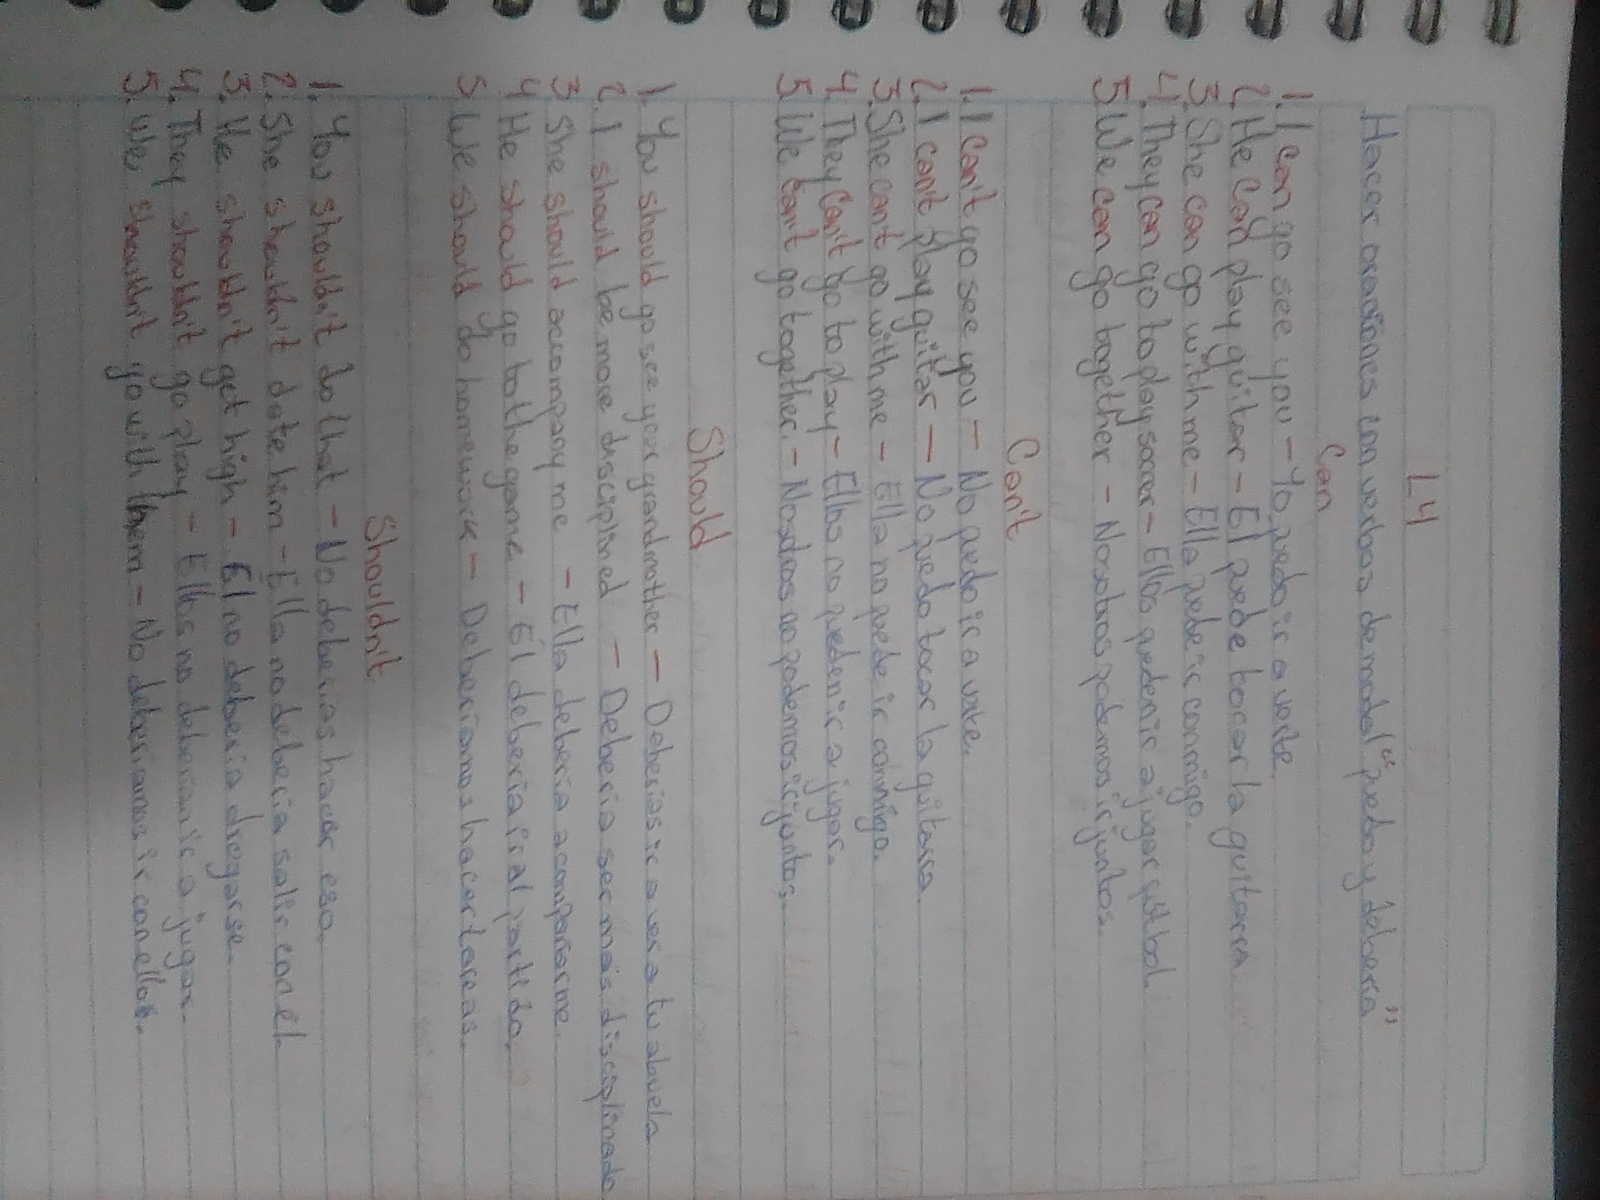 L4
Hacer oraciones con verbos de modal "puedo y debería"
Can
1. I can go see you – Yo puedo ir a verte.
2. He can play guitar – El puede tocar la guitarra
3. She can go with me – Ella puede ir conmigo.
4. They can go to play soccer – Ellos pueden ir a jugar fútbol.
5. We can go together – Nosotros podemos ir juntos.
Can't
1. I can't go see you – No puedo ir a verte.
2. I can't play guitar – No puedo tocar la guitarra
3. She can't go with me – Ella no puede ir conmigo.
4. They can't go to play – Ellos no pueden ir a jugar.
5 We can't go together. – Nosotros no podemos ir juntos.
Should
1. You should go see your grandmother – Deberias ir a ver a tu abuela
2. I should be more disciplined – Deberia ser más disciplinado
3 She should accompany me – Ella deberia acompañarme
4 He should go to the game. – Él deberia ir al partido.
5 We should do homework – Deberiamos hacer tareas.
Shouldn't
1. You shouldn't do that – No deberias hacer eso.
2. She shouldn't date him – Ella no deberia salir con el
3. He shouldn't get high – El no deberia drogarse.
4. They shouldn't go play – Ellos no deberian ir a jugar.
5. We shouldn't go with them – No deberiamos ir con ellos.